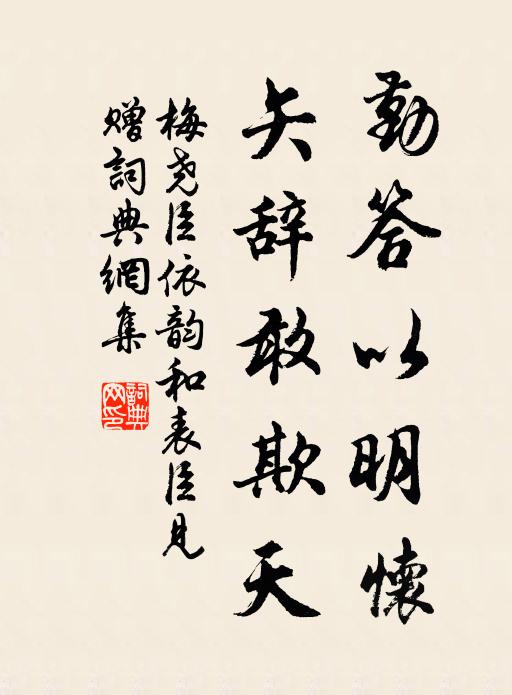 勤答以明懷
矢辞敢欺天
梅尧臣依韵和表臣见
赠詞典網集
詞典网印